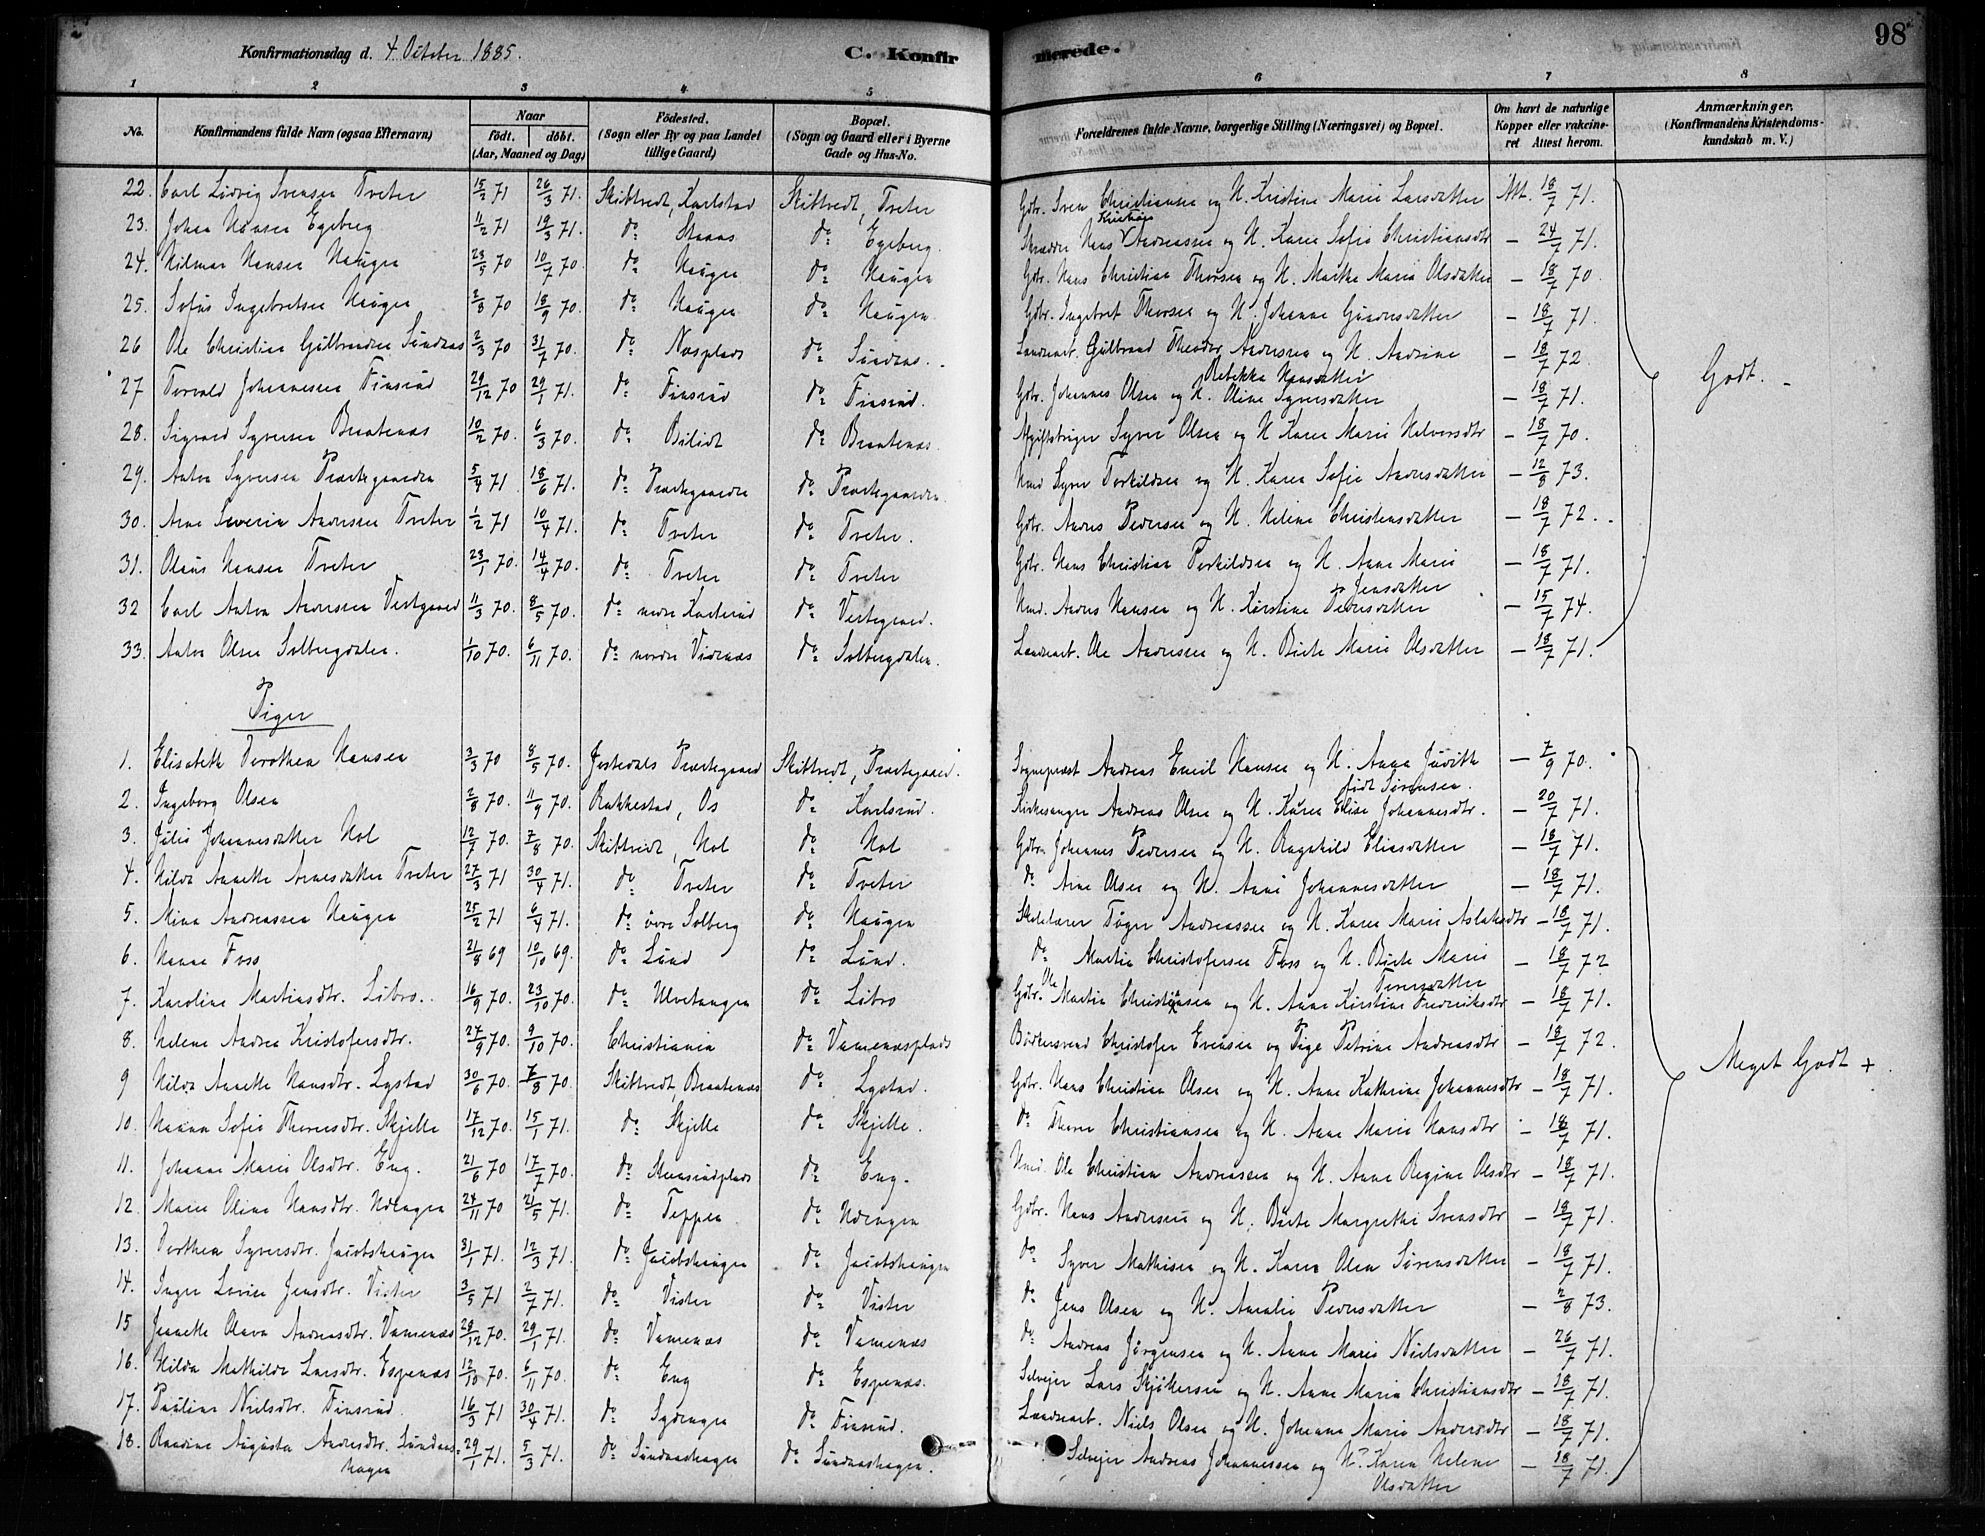 Konfirmationsdag d. 4 October 1885.
C. Konfirmerede.
98
1 2 3 4 5 6 7 8
No. Konfirmandens fulde Navn (ogsaa Efternavn) Naar födt. döbt. (Aar, Maaned og Dag) Födested. (Sogn eller By og paa Landet tillige Gaard) Bopæl. (Sogn og Gaard eller i Byerne Gade og Hus-No. Forældrenes fulde Navne, borgerlige Stilling (Næringsvei) og Bopæl. Om havt de naturlige Kopper eller vakcineret Attest herom. Anmærkninger. (Konfirmandens Kristendomskundskab m. V.)
22. Carl Ludvig Svensen Tveter 15/2 71 26/3 71. Skiptvedt, Karlstad Skiptvedt, Tveter Gdbr. Sven Christiansen og H. Kristine Marie Larsdatter Att. 18/7 71.
23. Johan Hansen Egeberg 11/2 71 19/3 71. do Egeberg. Skrædder Hans Kristian Andreassen og H. Karen Sofie Christiansdtr – 24/7 71.
24. Hilmar Hansen Haugen 23/5 70 10/7 70. do Haugen do Haugen Gdbr. Hans Christian Thorsen og H. Marthe Maria Olsdatter – 18/7 70
25. Sofus Ingebretsen Haugen 2/8 70 18/9 70. do Haugen do Haugen Gdbr. Ingebret Thorsen og H. Johanne Gundersdatter – 18/7 71.
26 Ole Christian Gulbrandsen Sundnæs 2/3 70 31/7 70. do Næsplads do Sundnæs. Landarb. Gulbrand Theodor Andersen og H. Andrine Rebekka Hansdatter – 18/7 72.
27 Torvald Johannessen Finsrud 29/12 70 29/1 71. do Finsrud do Finsrud. Gdbr. Johannes Olsen og H. Oline Syversdatter – 18/7 71.
Godt.
28. Sigvard Syversen Braatenæs 10/2 70. 6/3 70. do do Braatenæs. Syver Olsen og H Karen Marie Halvorsdtr – 18/7 70.
29. Anton Syversen Præstegaarden 5/4 71 18/6 71. do Præstegaarden do Præstegaarden Hmd Syver Torkildsen og H. Karen Sofie Andersdatter – 12/8 73.
30. Arne Severin Andersen Tveter 1/2 71 10/4 71. do Tveter do Tveter. Gdbr. Anders Pedersen og H. Helene Christensdatter – 18/7 72.
31. Olaus Hansen Tveter 23/1 70. 14/4 70. do Tveter do Tveter Gdbr. Hans Christian Torkildsen og H. Anne Marie Jensdatter – 18/7 71.
32 Carl Anton Andersen Vestgaard 11/3 70. 8/5 70. do nedre do Vestgaard. Hmd. Anders Hansen og H. Kirstine Pedersdatter – 15/7 74.
33. Anton Olsen Solbergdalen. 1/10 70. 6/11 70. do nordre Vidnæs do Solbergdalen. Landarb. Ole Andersen og H. Birte Marie Olsdatter – 18/7 71.
Piger
1. Elisabeth Dorothea Hansen 3/3 70 8/5 70. Jostedals Præstegaard Skiptvedt, Præstegaard. Sognepræst Andreas Emil Hansen og H. Anna Judith født Sørensen. – 7/9 70.
2. Ingeborg Olsen 2/8 70. 11/9 70. Rakkestad, Os do Karlsrud. Kirkesanger Andreas Olsen og H. Karen Elise Johannesdtr. – 20/7 71.
3. Julie Johannesdatter Hol 12/7 70. 7/8 70. Skiptvedt, Hol do Hol Gdbr. Johannes Pedersen og H. Ragnhild Eliasdatter – 18/7 71.
4. Hilda Annette Arnesdatter Tveter 27/3 71 30/4 71. do Tveter do Tveter do Arne Olsen og H. Anne Johannesdatter – 18/7 71.
5. Mina Andreassen Haugen 25/2 71 6/4 71. do övre Solberg do Haugen Skolelærer Andreassen og H. Karen Marie Aslaksdtr – 18/7 71.
6. Hanna Foss 21/8 69 10/10 69. do Lund do Lund. do Martin Christofersen Foss og H. Birte Marie Iversdatter – 18/7 72
7. Karoline Martinsdtr. Libro. 16/9 70. 23/10 70. do Ulvetangen do Libro Gdbr. Ole Martin Christiansen og H. Anne Kirstine Fredriksdtr – 18/7 71.
8. Helene Andrea Kristofersdtr. 27/9 70. 9/10 70. Christiania do Vamenæsplads Christofer Evensen og Pige Petrine Andreasdtr – 18/7 72.
9 Hilda Annette Hansdtr. Lystad 30/6 70. 7/8 70. Skiptvedt Braatenæs do Lystad. Gdbr. Hans Christian Olsen og H. Anne Kathrine Johannesdtr – 18/7 71.
Meget Godt +
10. Hanna Sofie Thoresdtr. Skjelle 17/12 70. 15/1 71. do Skjelle do Skjelle. do Thore Christiansen og H. Anne Marie Hansdtr – 18/7 71.
11. Johanne Marie Olsdtr. Eng. 21/6 70 17/7 70. do Stensrudplads do Eng. Hmd. Ole Christian Andreassen og H. Anne Regine Olsdtr – 18/7 71.
12. Maren Oline Hansdtr. Udengen 24/11 70 21/5 71. do Teppen do Udengen Gdbr. Hans Andersen og H. Birte Margrethe Svensdtr – 18/7 71.
13. Dorthea Syversdtr. Jacobshaugen 31/1 71. 12/3 71. do Jacobshaugen do Jacobshaugen do Syver Mathisen og H. Karen Olea Sørensdatter – 18/7 71.
14. Inger Lovise Jensdtr. Vister 3/5 71 2/7 71. do Vister do Vister do Jens Olsen og H. Amalie Pedersdatter – 2/8 73.
15 Jeanette Olava Andreasdtr. Vamenæs 28/12 70. 29/1 71. do Vamenæs do Vamenæs do Andreas Jørgensen og H. Anne Marie Nielsdatter – 26/7 71.
16. Hilda Mathilde Larsdtr. Espenæs 12/10 70. 6/11 70. do Eng do Espenæs. Selveier Lars og H. Anne Maria Christiansdtr – 18/7 71.
17. Pauline Nielsdtr. Finsrud. 16/3 71 30/4 71. do Sydengen do Finsrud. Landarb. Niels Olsen og H. Johanne Marie Andersdtr – 18/7 71.
18. Augusta Andreasdtr. Sundnæshagen 29/1 71. 5/3 71. do Sundnæshagen do Sundnæshagen. Selveier Andreas Johannessen og H. Karen Helene Olsdatter – 18/7 71.